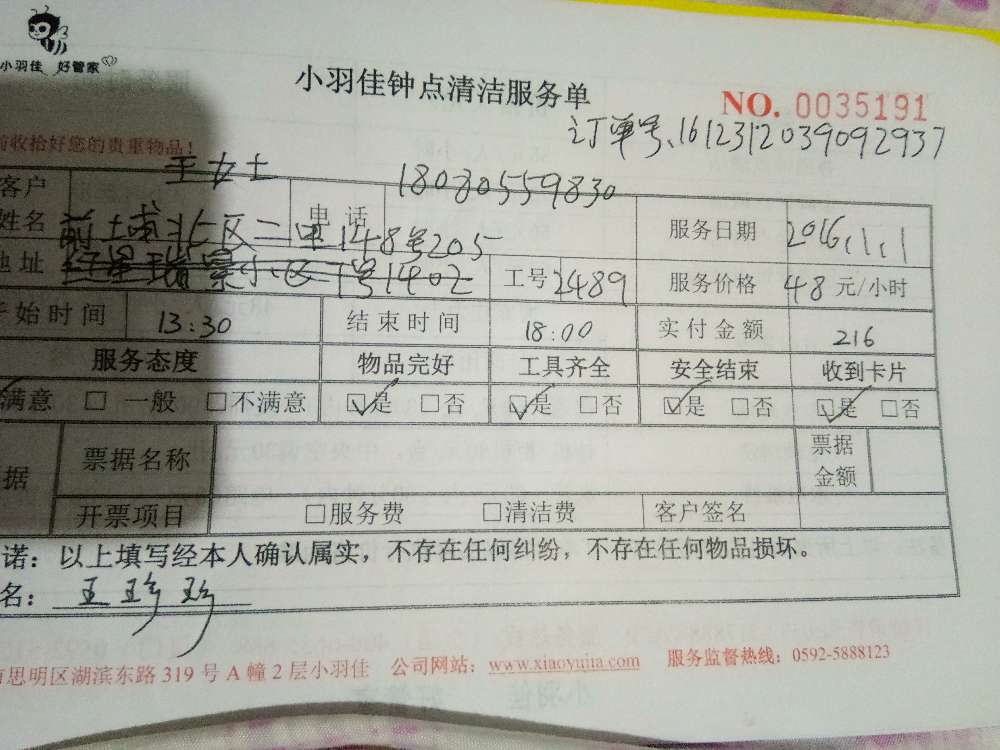 小羽佳 好管家
小羽佳钟点清洁服务单
NO. 0035191
订单号、161231203909 2937
前收拾好您的贵重物品!
客户姓名 王女士 电话 18030559830 服务日期 2016,1,1
地址 前埔北区二里148号205 工号 2489 服务价格 48 元/小时
开始时间 13:30 结束时间 18:00 实付金额 216
服务态度 物品完好 工具齐全 安全结束 收到卡片
满意 □ 一般 □不满意 ☑是 □否 ☑是 □否 ☑是 □否 ☑是 □否
据 票据名称 票据金额
开票项目 □服务费 □清洁费 客户签名
诺:以上填写经本人确认属实,不存在任何纠纷,不存在任何物品损坏。
名: 王珍珍
市思明区湖滨东路319号A幢2层小羽佳 公司网站:www.xiaoyujia.com 服务监督热线:0592-5888123